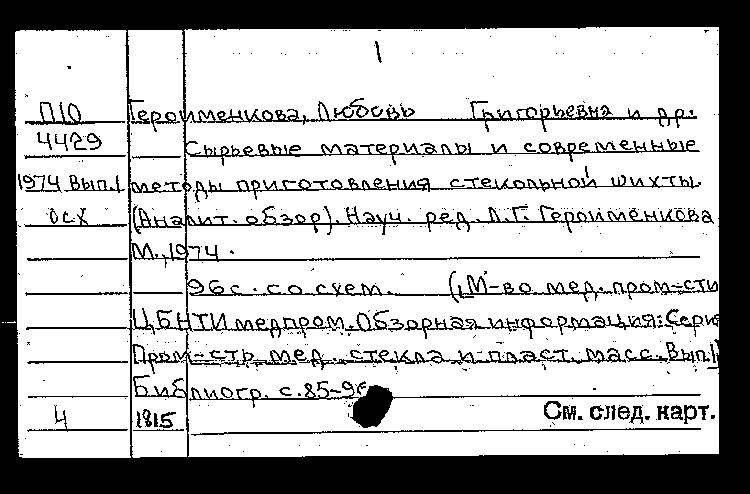 1
П10 Героименкова, Любовь Григорьевна и др.
4429 Сырьевые материалы и современные
1974 Вып.1 методы приготовления стекольной шихты.
осх (Аналит. обзор). Науч. ред. Л.Г. Героименкова
М., 1974.
96 с. со схем. ([М-во мед. пром-сти
ЦБНТИ медпром. Обзорная информация: Серия
Пром-сть мед. стекла и пласт. масс. Вып.1)
Библиогр. с. 85-96
4 1815 См. след. карт.